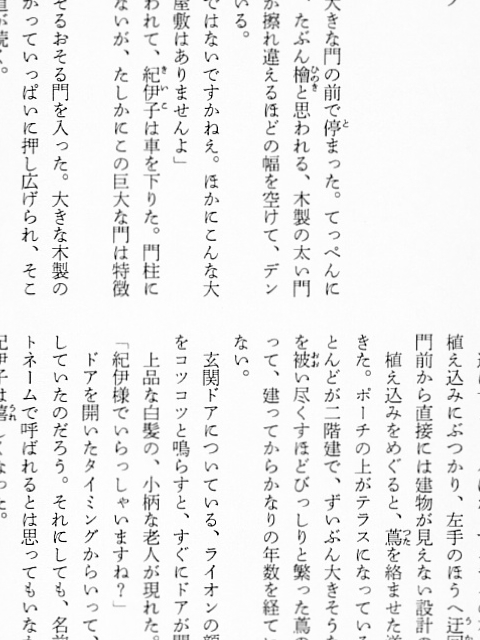 大きな門の前で停まった。てっぺんに
、たぶん檜と思われる、木製の太い門
が擦れ違えるほどの幅を空けて、デン
いる。
ではないですかねえ。ほかにこんな大
屋敷はありませんよ」
われて、紀伊子は車を下りた。門柱に
ないが、たしかにこの巨大な門は特徴
そるおそる門を入った。大きな木製の
かっていっぱいに押し広げられ、そこ
道が続く。
植え込みにぶつかり、左手のほうへ迂回
門前から直接には建物が見えない設計の
植え込みをめぐると、蔦を絡ませた
きた。ポーチの上がテラスになっている
とんどが二階建で、ずいぶん大きそうな
を被い尽くすほどびっしりと繁った蔦の
って、建ってからかなりの年数を経てい
ない。
玄関ドアについている、ライオンの顔
をコツコツと鳴らすと、すぐにドアが開
上品な白髪の、小柄な老人が現れた。
「紀伊様でいらっしゃいますね？」
ドアを開いたタイミングからいって、
していたのだろう。それにしても、名前
トネームで呼ばれるとは思ってもいな
紀伊子は嬉しくなった。